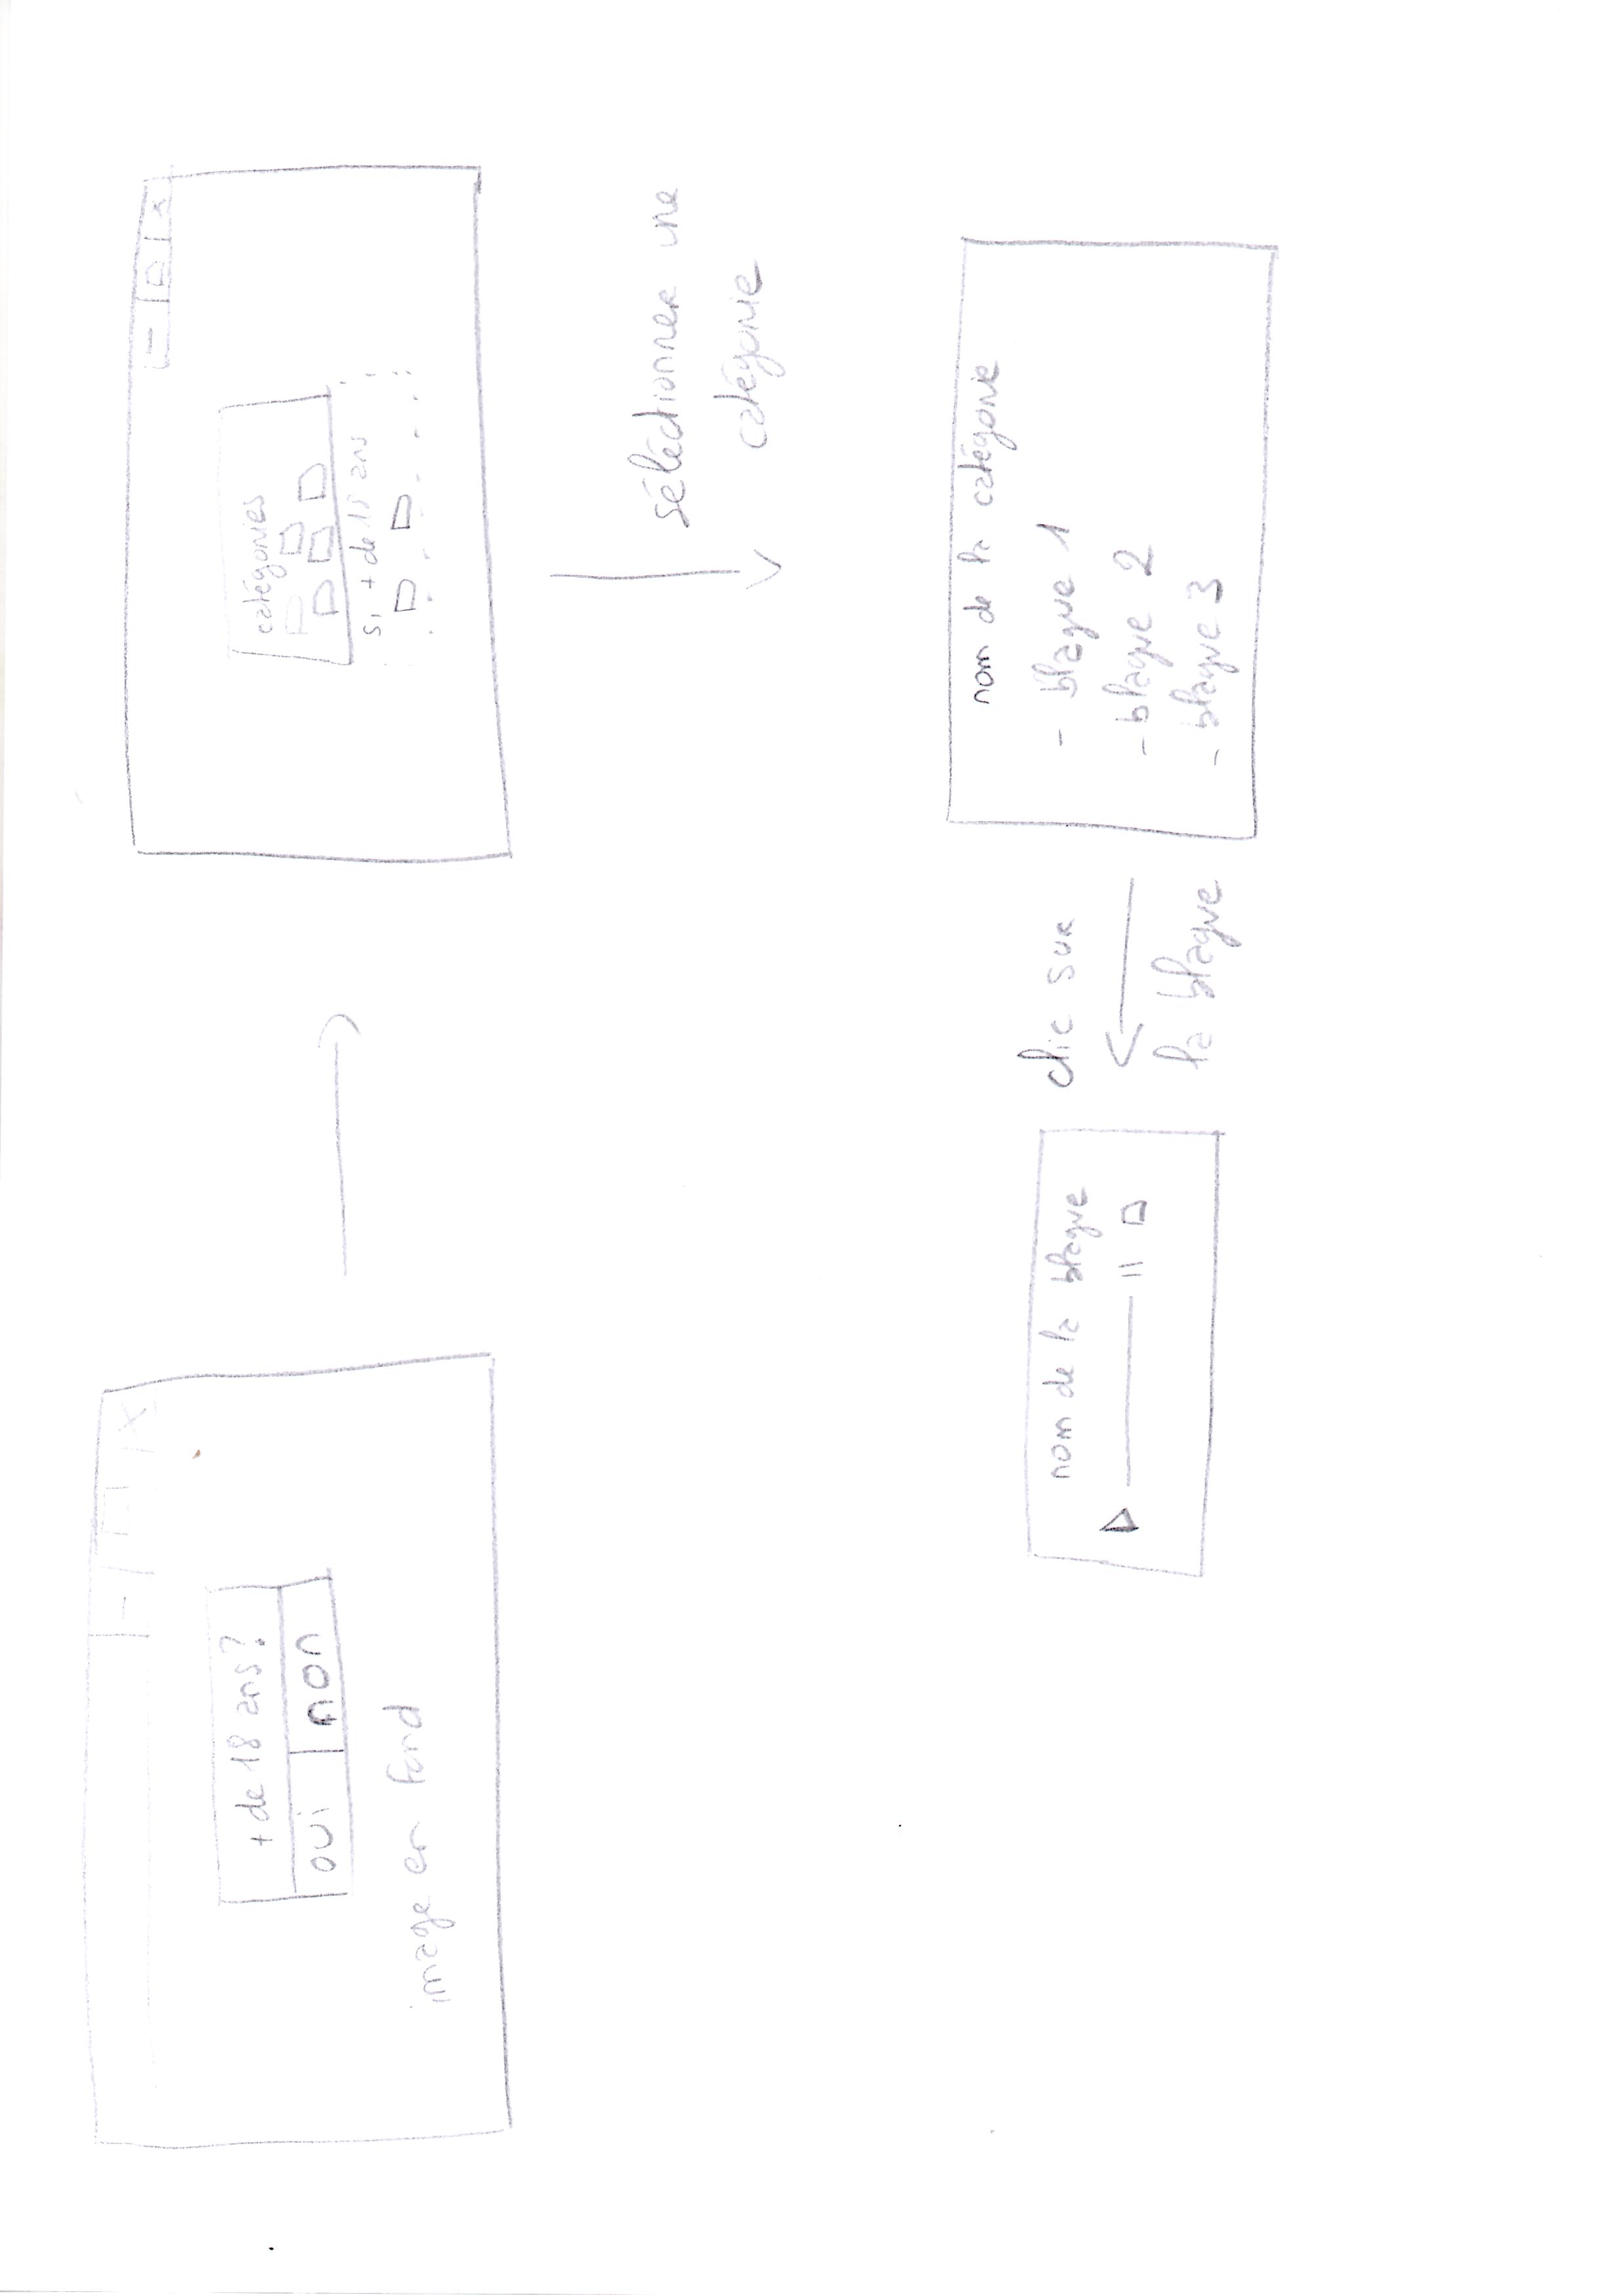 + de 18 ans ?
oui non
image en fond
catégories
si + de 18 ans
sélectionner une
catégorie
nom de la catégorie
- blague 1
- blague 2
- blague 3
clic sur
la blague
nom de la blague